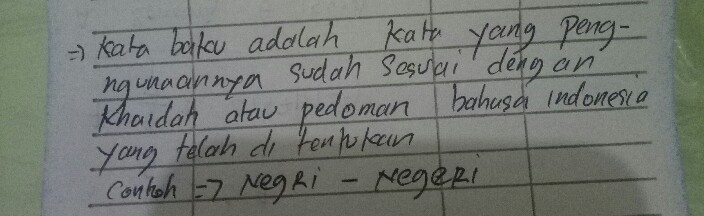 => Kata baku adalah kata yang Peng-
ngunaannya sudah Sesuai dengan
Khaidah atau pedoman bahasa indonesia
yang telah di tentukan
Contoh => Negri - Negeri